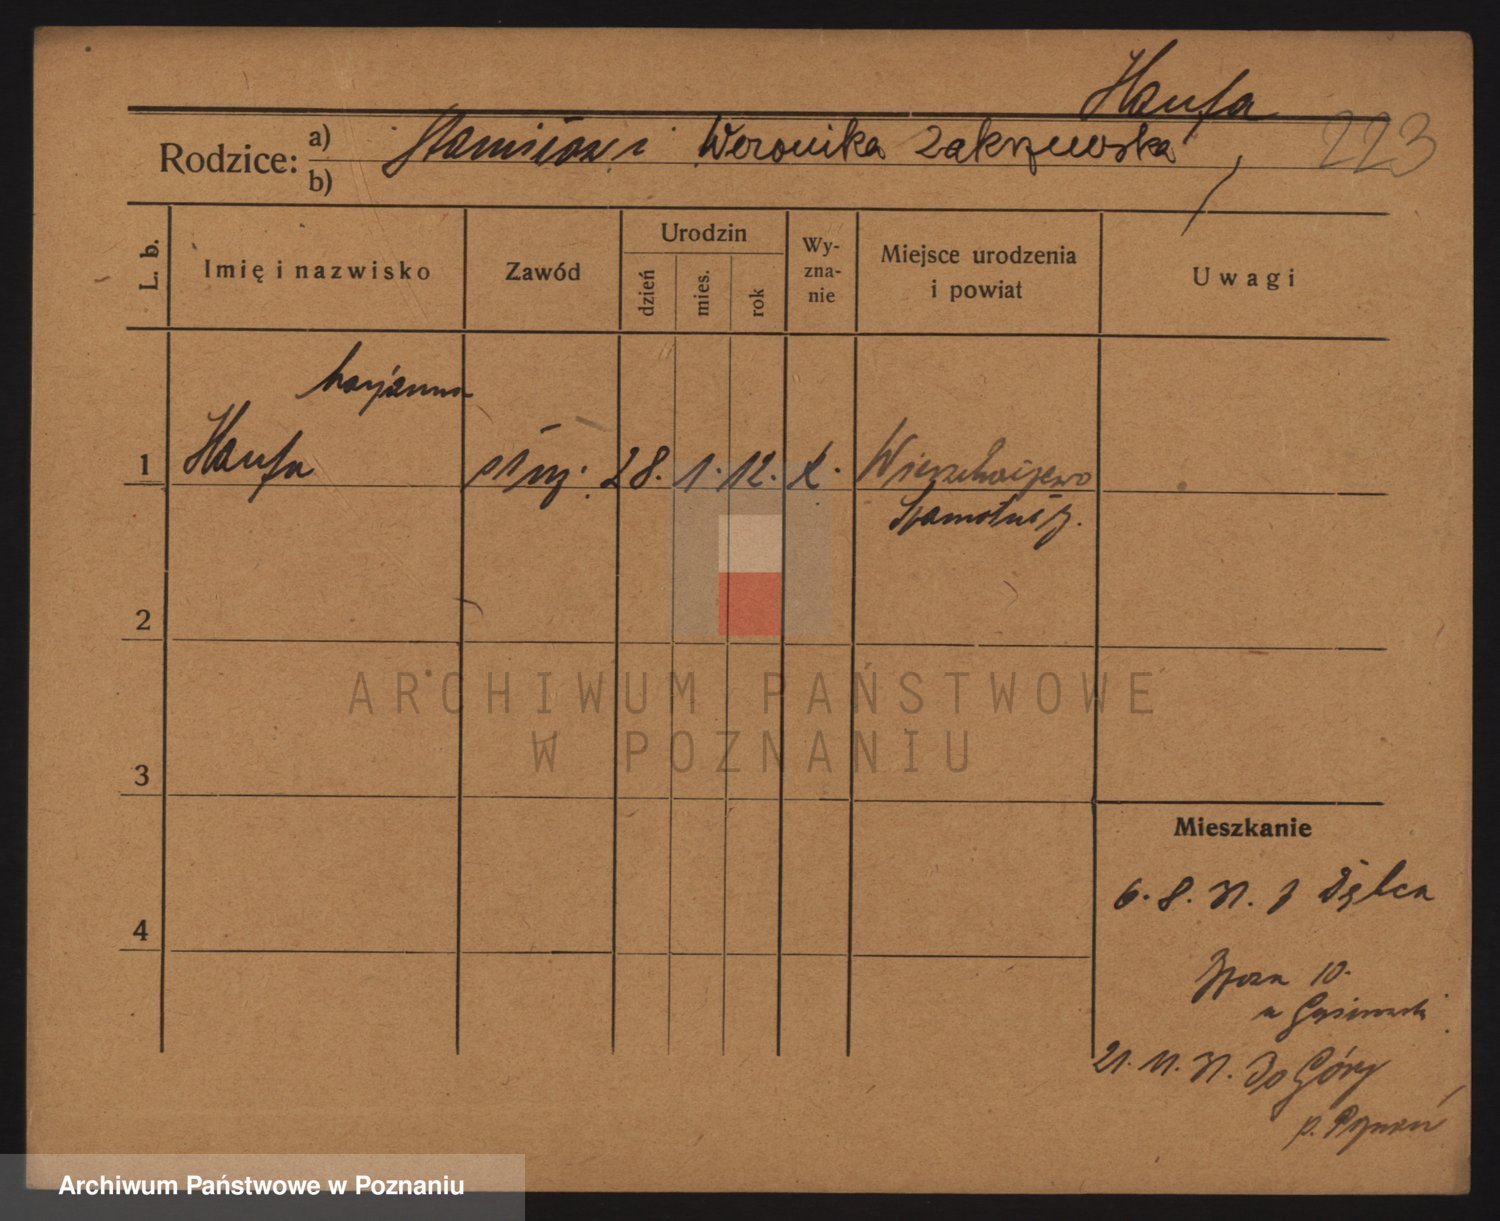 Hanfa
Rodzice: a) Stanisław i Weronika Zakrzewska 223
b)
L. b. Imię i nazwisko Zawód Urodzin dzień mies. rok Wyznanie Miejsce urodzenia i powiat Uwagi
Marjanna
1 Hanfa służ. 28. 1. 12. k.
Szamotuły
2
3
4
ARCHIWUM PAŃSTWOWE
W POZNANIU
Mieszkanie
6. 8. 31. z Dębca
10.
21. 11. 31. do Góry
p. Poznań
Archiwum Państwowe w Poznaniu